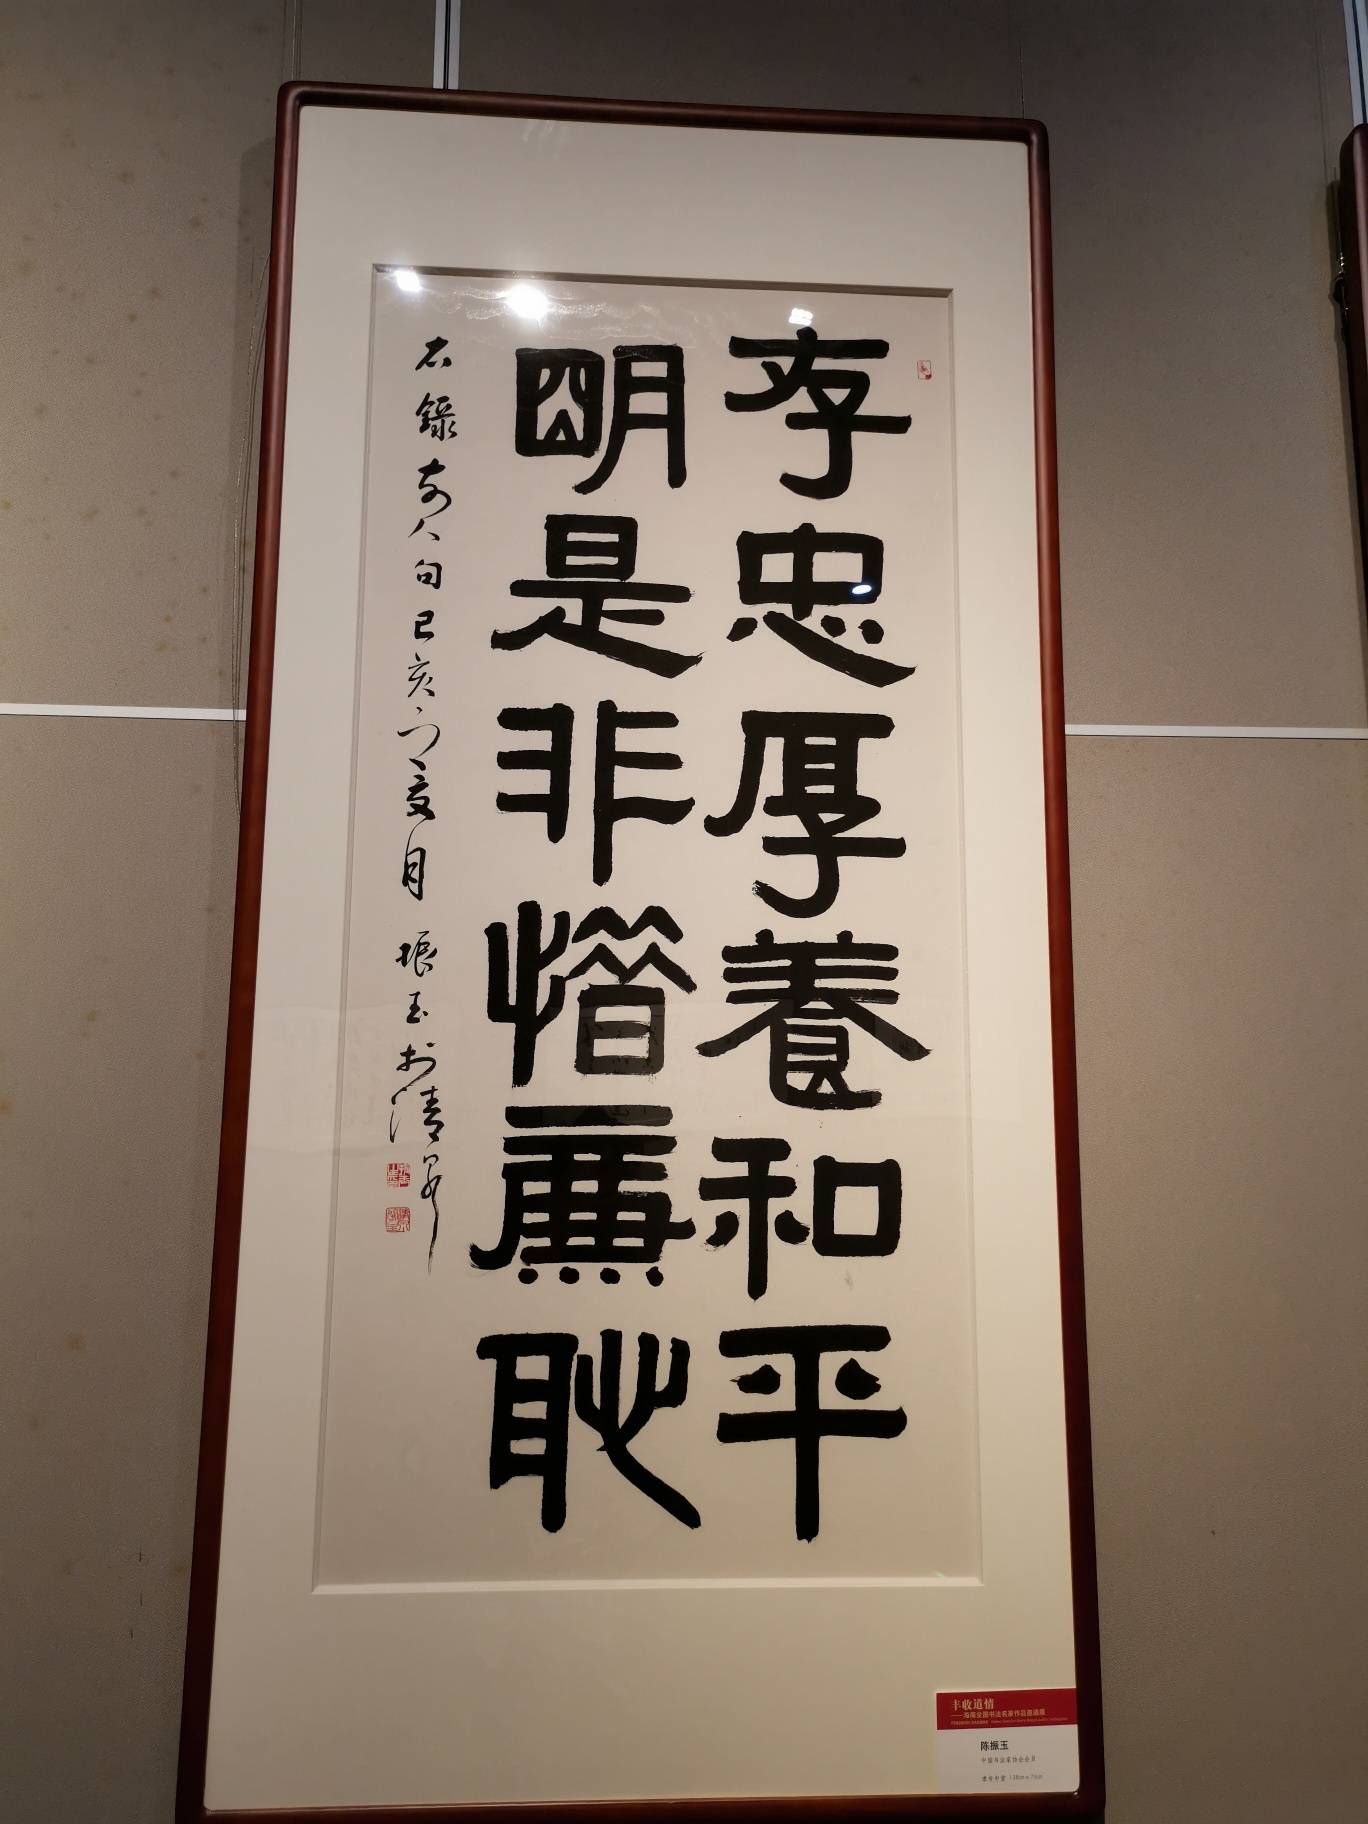 存忠厚養和平
明是非惜廉恥
右録前人句己亥之夏月振玉於清
丰收道情
——海南全国书法名家作品邀请展
陈振玉
中国书法家协会会员